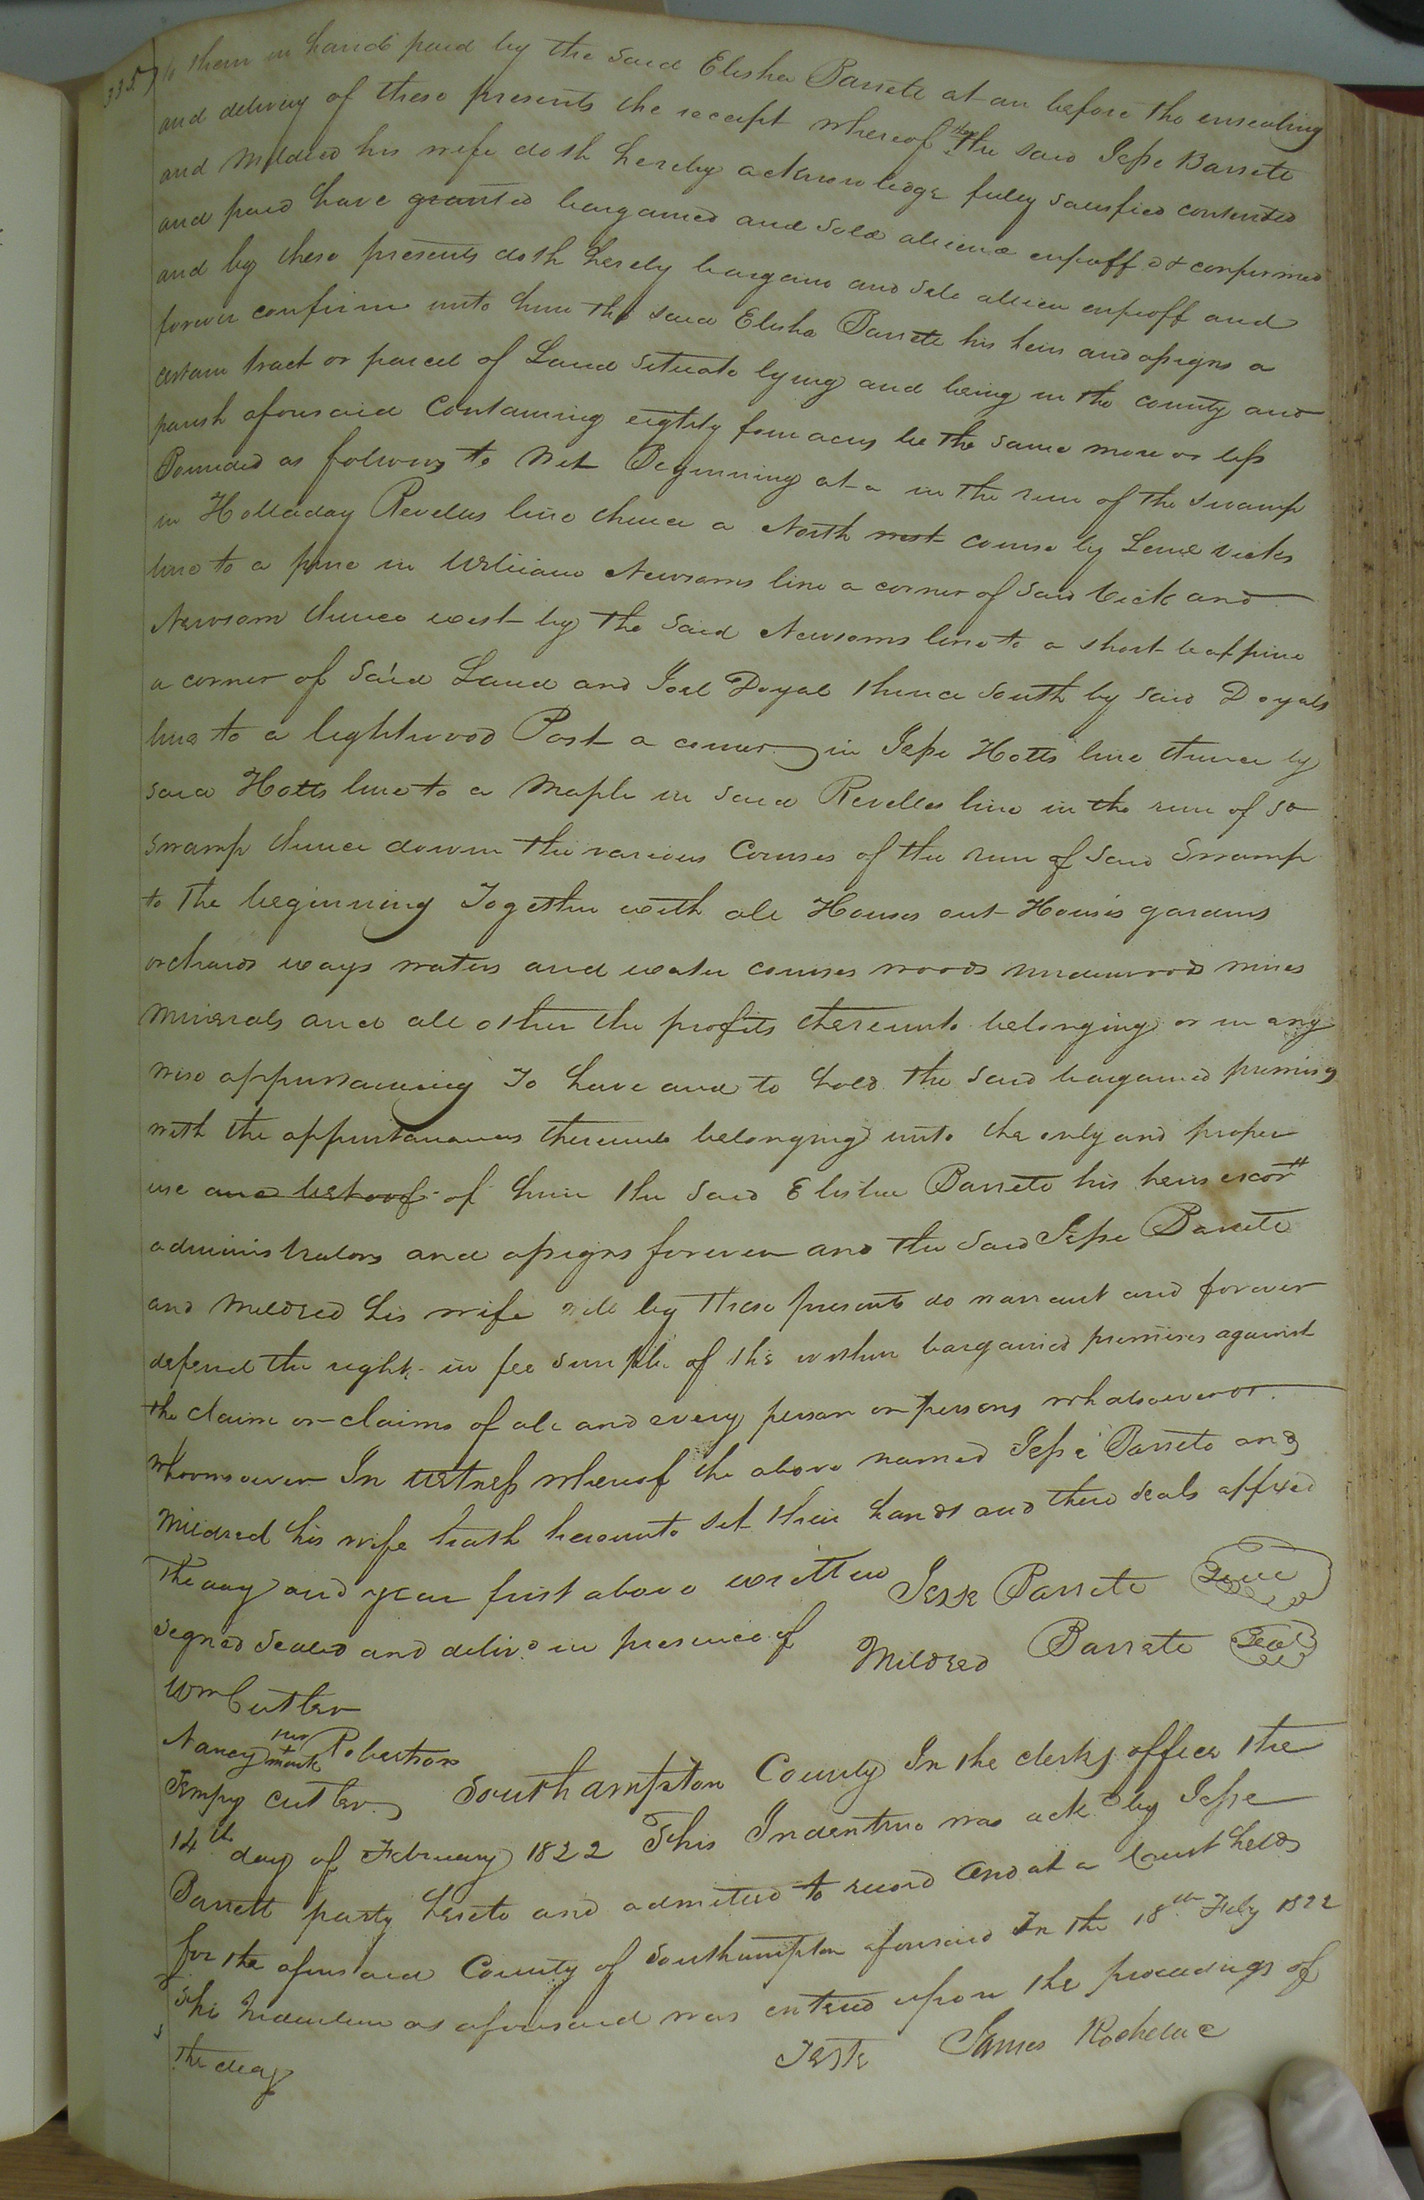 335
to them in hand paid by the said Elisha Barrete at an before the ensealing
and delivery of these presents the receipt whereof they the said Jesse Barrete
and Mildred his wife doth hereby acknowledge fully satisfied contented
and paid have granted bargained and sold aliend enfeoff.d & confirmed
and by these presents doth hereby bargain and sele alien enfeoff and
forever confirm unto him the said Elisha Barrete his heirs and assigns a
certain tract or parcel of Land situate lying and being in the county and
parish aforesaid Containing eightly four acres be the same more or less
Bounded as follows to Wit Beginning at a in the run of the swamp
in Holladay Revells line thence a North west course by Vicks
line to a pine in William Newsoms line a corner of said Vick and
Newsom thence west by the said Newsoms line to a short leaf pine
a corner of said Land and Joel Doyal thence South by said Doyals
line to a lightwood Post a corner in Jesse Hotts line thence by
said Hotts line to a Maple in said Revelles line in the run of sd
swamp thence down the various Courses of the run of said Swamp
to The beginning Together with all Houses out-Houses gardens
orchards ways waters and water courses woods underwoods mines
Minerals and all other the profits thereunto belonging or in any
wise appurtaining To have and to hold the said bargained premises
with the appurtanances thereunto belonging unto the only and proper
use and behoof of him the said Elisha Barrete his heirs excors
administrators and assigns forever and the said Jesse Barrete
and Mildred his wife will by these presents do warrant and forever
defend the right in fee simple of the within bargained premises against
the claim or claims of all and every person or persons whatsoever or
whomsoever In Witness whereof the above named Jesse Barrete and
Mildred his wife hath hereunto set their hands and their seals affixed
The day and year first above written Jesse Barrete Seal
signed sealed and deliv.d in presence of Mildred Barrete Seal
Wm Cutler
Nancy her + mark Robertson
Tempy Cutler Southampton County In the clerks office the
14th day of February 1822 This Indenture was ack.d by Jesse
Barrett party hereto and admitted to record and at a Court held
for the aforesaid County of Southampton aforesaid In the 18th Feby 1822
This Indenture as aforesaid was entered upon the proceedings of
the day Teste James Rochelle C